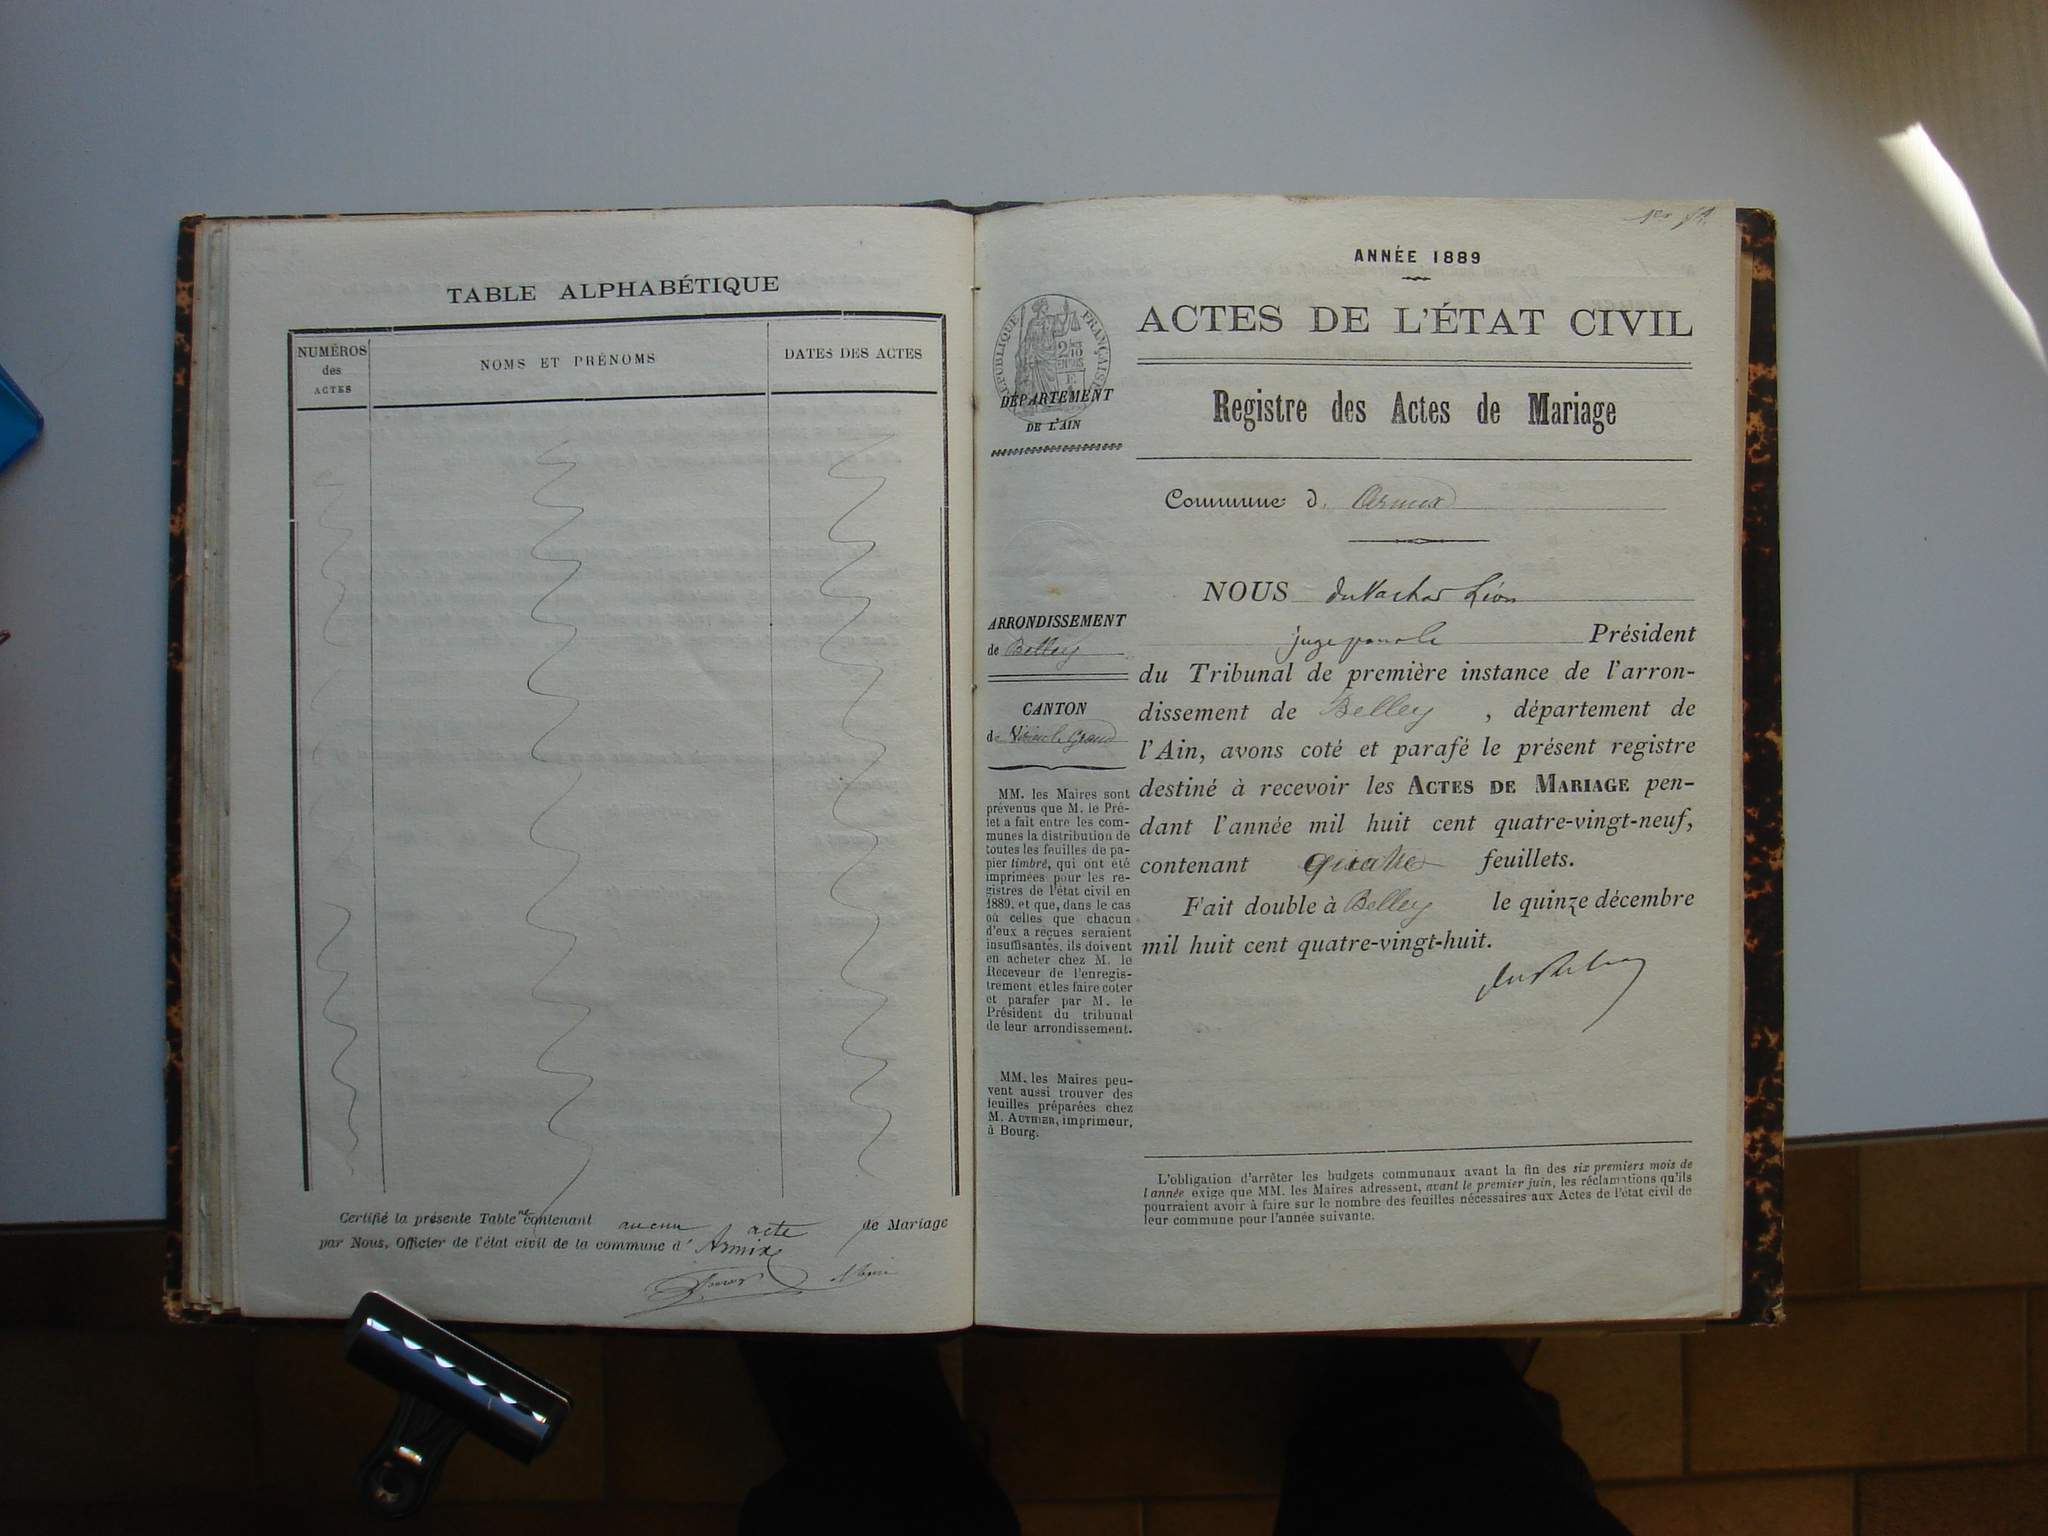 TABLE ALPHABÉTIQUE
NUMÉROS
des
ACTES
NOMS ET PRÉNOMS
DATES DES ACTES
Certifié la présente Table ne contenant aucun acte de Mariage
par Nous, Officier de l'état civil de la commune d' Armix
1er
ANNÉE 1889
ACTES DE L'ÉTAT CIVIL
RÉPUBLIQUE FRANÇAISE
DÉPARTEMENT
DE L'AIN
Registre des Actes de Mariage
Commune d. Armix
ARRONDISSEMENT
de Belley
CANTON
de Virieu le Grand
MM. les Maires sont
prévenus que M. le Pré-
fet a fait entre les com-
munes la distribution de
toutes les feuilles de pa-
pier timbré, qui ont été
imprimées pour les re-
gistres de l'état civil en
1889, et que, dans le cas
où celles que chacun
d'eux a reçues seraient
insuffisantes, ils doivent
en acheter chez M. le
Receveur de l'enregis-
trement et les faire coter
et parafer par M. le
Président du tribunal
de leur arrondissement.
MM. les Maires peu-
vent aussi trouver des
feuilles préparées chez
M. AUTHIER, imprimeur,
à Bourg.
NOUS Léon
juge Président
du Tribunal de première instance de l'arron-
dissement de Belley, département de
l'Ain, avons coté et parafé le présent registre
destiné à recevoir les ACTES DE MARIAGE pen-
dant l'année mil huit cent quatre-vingt-neuf,
contenant quatre feuillets.
Fait double à Belley le quinze décembre
mil huit cent quatre-vingt-huit.
L'obligation d'arrêter les budgets communaux avant la fin des six premiers mois de
l'année exige que MM. les Maires adressent, avant le premier juin, les réclamations qu'ils
pourraient avoir à faire sur le nombre des feuilles nécessaires aux Actes de l'état civil de
leur commune pour l'année suivante.